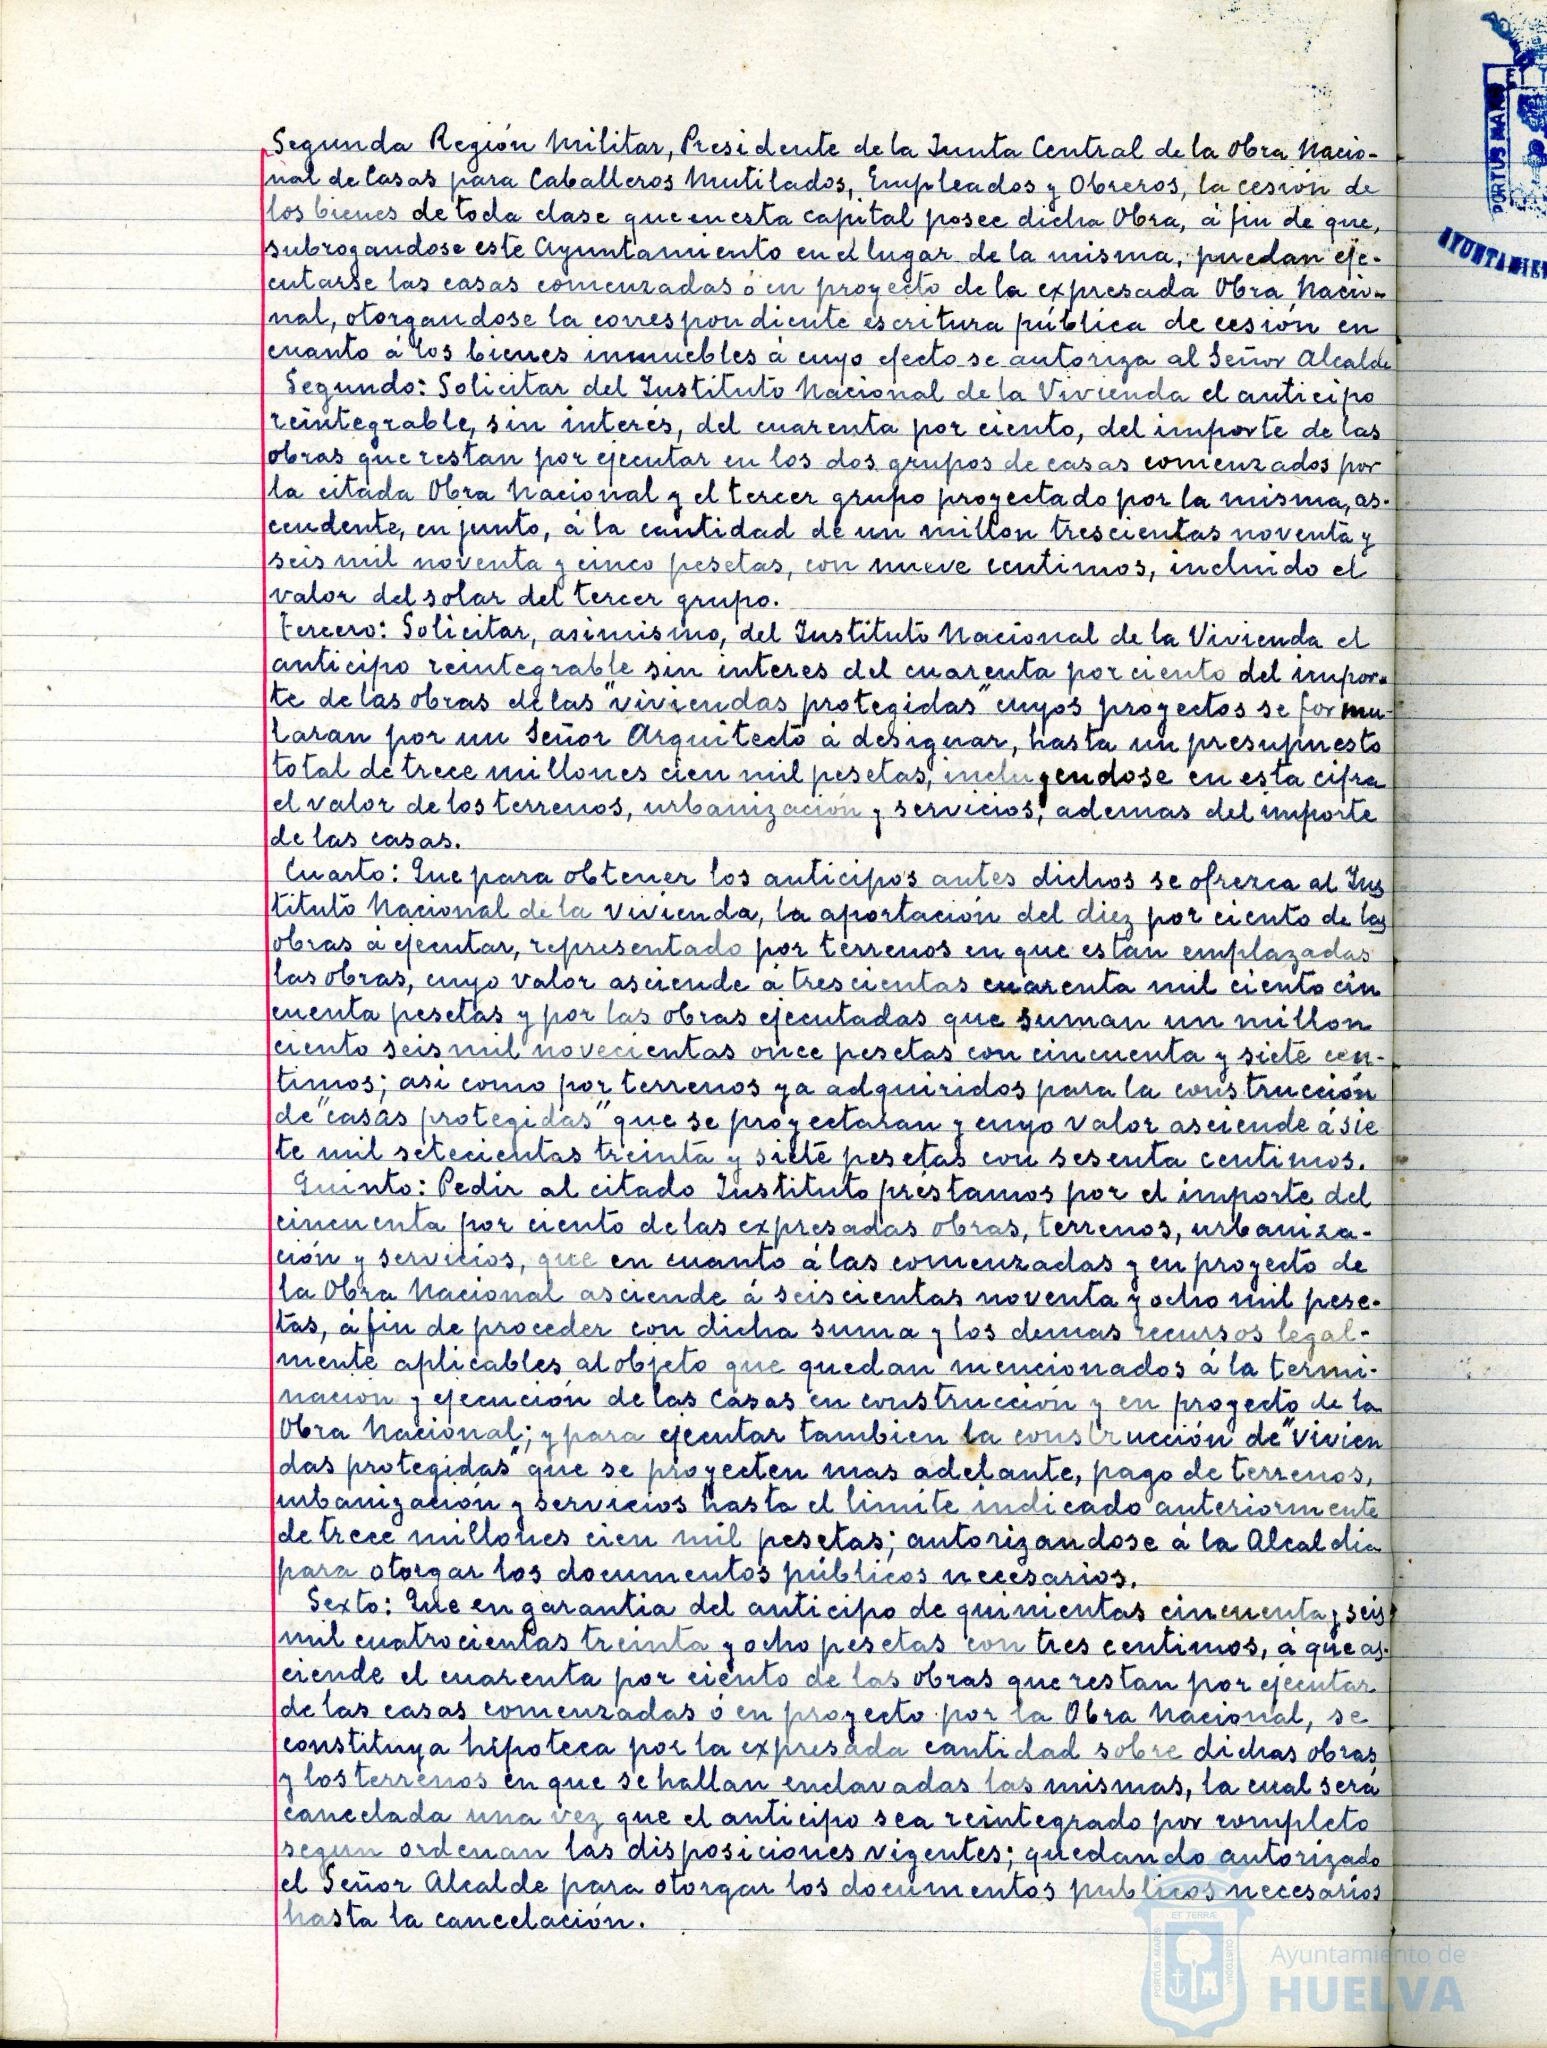 Segunda Región Militar, Presidente de la Junta Central de la Obra Nacio-
nal de Casas para Caballeros Mutilados, Empleados y Obreros, la cesión de
los bienes de toda clase que en esta capital posee dicha Obra, á fin de que,
subrogandose este Ayuntamiento en el lugar de la misma, puedan eje-
cutarse las casas comenzadas ó en proyecto de la expresada Obra Nacio-
nal, otorgandose la correspondiente escritura pública de cesión en
cuanto á los bienes inmuebles á cuyo efecto se autoriza al Señor Alcalde
Segundo: Solicitar del Instituto Nacional de la Vivienda el anticipo
reintegrable, sin interés, del cuarenta por ciento, del importe de las
obras que restan por ejecutar en los dos grupos de casas comenzados por
la citada Obra Nacional y el tercer grupo proyectado por la misma, as-
cendente, en junto, á la cantidad de un millon trescientas noventa y
seis mil noventa y cinco pesetas, con nueve centimos, incluido el
valor del solar del tercer grupo.
Tercero: Solicitar, asimismo, del Instituto Nacional de la Vivienda el
anticipo reintegrable sin interes del cuarenta por ciento del impor-
te de las obras de las "viviendas protegidas" cuyos proyectos se formu-
laran por un Señor Arquitecto á designar, hasta un presupuesto
total de trece millones cien mil pesetas, incluyendose en esta cifra
el valor de los terrenos, urbanización y servicios, ademas del importe
de las casas.
Cuarto: Que para obtener los anticipos antes dichos se ofrezca al Ins
tituto Nacional de la Vivienda, la aportación del diez por ciento de las
obras á ejecutar, representado por terrenos en que estan emplazadas
las obras, cuyo valor asciende á trescientas cuarenta mil ciento cin
cuenta pesetas y por las obras ejecutadas que suman un millon
ciento seis mil novecientas once pesetas con cincuenta y siete cen-
timos; asi como por terrenos ya adquiridos para la construcción
de "casas protegidas" que se proyectaran y cuyo valor asciende á sie
te mil setecientas treinta y siete pesetas con sesenta centimos.
Quinto: Pedir al citado Instituto préstamos por el importe del
cincuenta por ciento de las expresadas obras, terrenos, urbaniza-
ción y servicios, que en cuanto á las comenzadas y en proyecto de
la Obra Nacional asciende á seiscientas noventa y ocho mil pese-
tas, á fin de proceder con dicha suma y los demas recursos legal-
mente aplicables al objeto que quedan mencionados á la termi-
nación y ejecución de las Casas en construcción y en proyecto de la
Obra Nacional; y para ejecutar tambien la construcción de "Vivien
das protegidas" que se proyecten mas adelante, pago de terrenos,
urbanización y servicios hasta el limite indicado anteriormente
de trece millones cien mil pesetas; autorizandose á la Alcaldia
para otorgar los documentos públicos necesarios.
Sexto: Que en garantia del anticipo de quinientas cincuenta y seis
mil cuatrocientas treinta y ocho pesetas con tres centimos, á que as-
ciende el cuarenta por ciento de las obras que restan por ejecutar
de las casas comenzadas ó en proyecto por la Obra Nacional, se
constituya hipoteca por la expresada cantidad sobre dichas obras
y los terrenos en que se hallan enclavadas las mismas, la cual será
cancelada una vez que el anticipo sea reintegrado por completo
segun ordenan las disposiciones vigentes; quedando autorizado
el Señor Alcalde para otorgar los documentos publicos necesarios
hasta la cancelación.
PORTUS MARIS
AYUNTAMIEN
ET TERRÆ
PORTUS MARIS
CUSTODIA
Ayuntamiento de
HUELVA